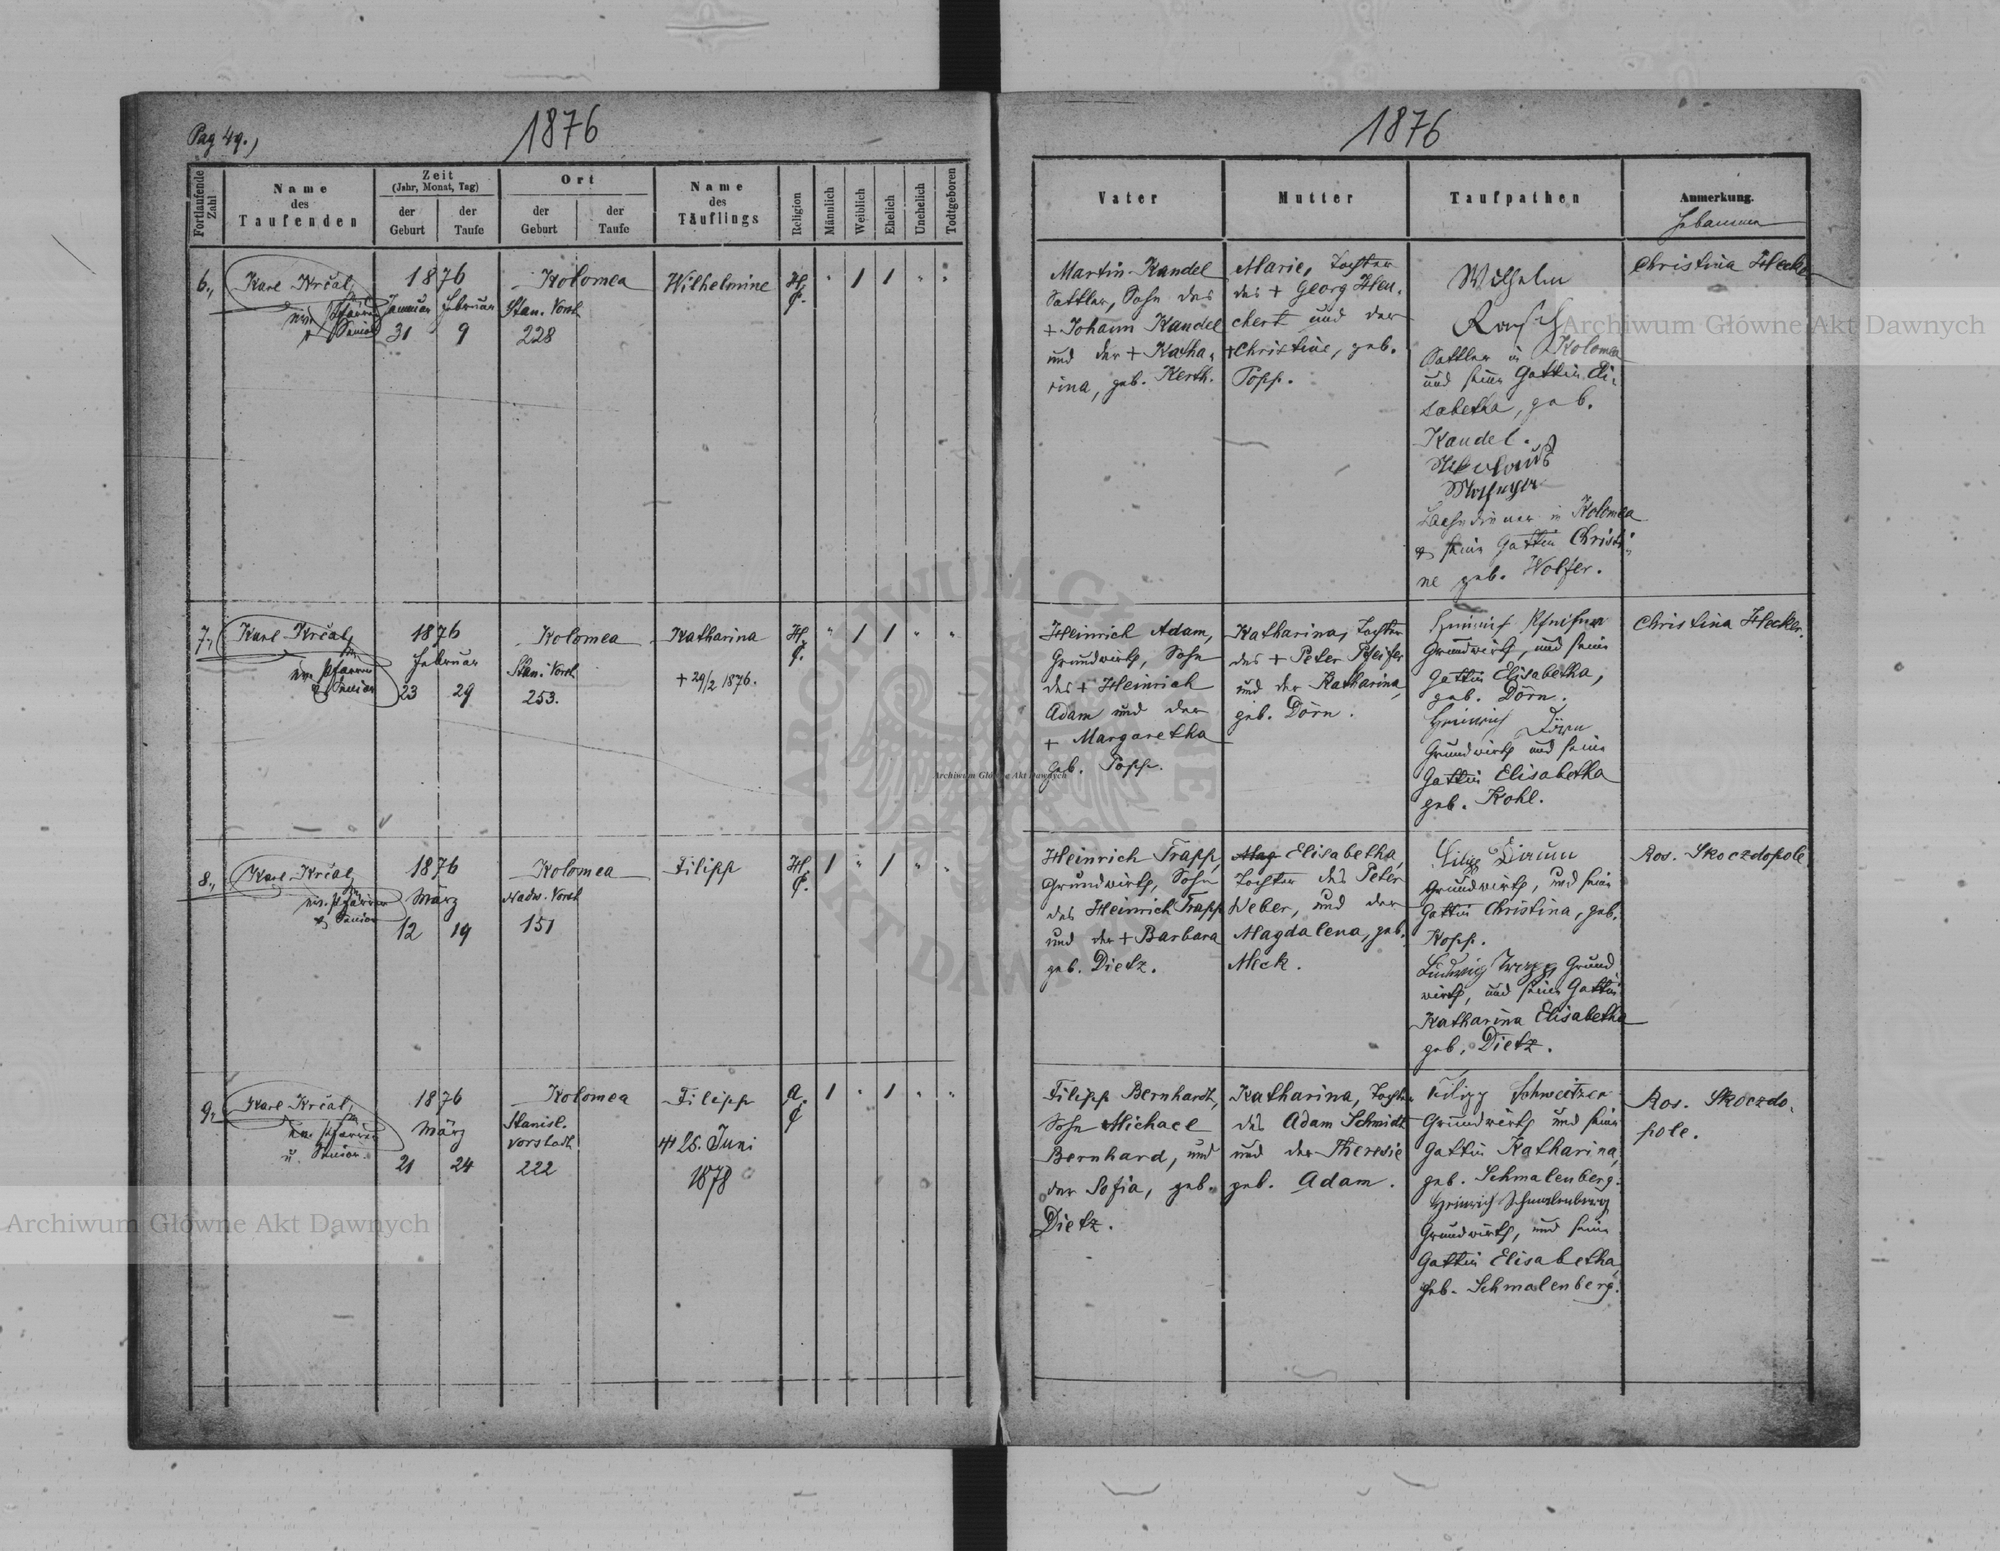 Pag 49.)
1876
1876
Fortlaufende Zahl
Name des Taufenden
Zeit
(Jahr, Monat, Tag)
der Geburt
der Taufe
Ort
der Geburt
der Taufe
Name des Täuflings
Religion
Männlich
Weiblich
Ehelich
Unehelich
Todtgeboren
Vater
Mutter
Taufpathen
Anmerkung.
Hebamme
6.,
Karl Krčal,
ev. Pfarrer
& Senior
1876
Januar
Februar
31
9
Kolomea
Stan. Vorst
228
Wilhelmine
H.
C.
"
1
1
"
"
Martin Kandel
Sattler, Sohn des
+ Johann Kandel
und der + Katha-
rina, geb. Kerth.
Marie, Tochter
des + Georg Heu-
chert und der
+ Christine, geb.
Popp.
Wilhelm
Sattler in Kolomea
und seine Gattin Eli-
sabetha, geb.
Kandel.
in Kolomea
& seine Gattin Christi-
ne geb. Wolfer.
Christina Hecker
7.,
Karl Krčal,
ev. Pfarrer
& Senior
1876
Februar
23
29
Kolomea
Stan. Vorst
253.
Katharina
+ 29/2 1876.
H.
C.
"
1
1
"
"
Heinrich Adam,
Grundwirth, Sohn
des + Heinrich
Adam und der
+ Margaretha
geb. Popp.
Katharina, Tochter
des + Peter Pfeifer
und der Katharina,
geb. Dörn.
Heinrich Pfeifer
Grundwirth, und seine
Gattin Elisabetha,
geb. Dörn.
Heinrich Dörn
Grundwirth und seine
Gattin Elisabetha
geb. Kohl.
Christina Hecker.
8.,
Karl Krčal,
ev. Pfarrer
& Senior
1876
März
12
19
Kolomea
Nadw. Vorst
151
Filipp
H.
C.
1
"
1
"
"
Heinrich Trapp,
Grundwirth, Sohn
des Heinrich Trapp
und der + Barbara
geb. Dietz.
Mag Elisabetha,
Tochter des Peter
Weber, und der
Magdalena, geb.
Meck.
Filipp
Grundwirth, und seine
Gattin Christina, geb.
Kopp.
Ludwig Trapp, Grund
wirth, und seine Gattin
Katharina Elisabetha
geb. Dietz.
Ros. Skoczdopole
9.,
Karl Krčal,
ev. Pfarrer
u. Senior.
1876
März
21
24
Kolomea
Stanisl.
Vorstadt
222
Filipp
+ 25. Juni
1878
A.
C
1
"
1
"
"
Filipp Bernhardt,
Sohn Michael
Bernhard, und
der Sofia, geb.
Dietz.
Katharina, Tochter
des Adam Schmidt
und der Theresie
geb. Adam.
Filipp Schweitzer
Grundwirth und seine
Gattin Katharina,
geb. Schmalenberg.
Heinrich Schmalenberg
Grundwirth, und seine
Gattin Elisabetha,
geb. Schmalenberg.
Ros. Skoczdo-
pole.
Archiwum Główne Akt Dawnych
Archiwum Główne Akt Dawnych
Archiwum Główne Akt Dawnych
ARCHIWUM GŁÓWNE AKT DAWNYCH